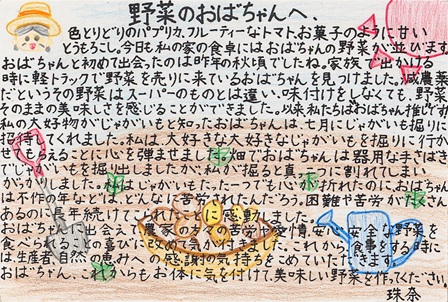 野菜のおばちゃんへ、
色とりどりのパプリカ、フルーティーなトマト、お菓子のように甘い
とうもろこし。今日も私の家の食卓にはおばちゃんの野菜が並びます。
おばちゃんと初めて出会ったのは昨年の秋頃でしたね。家族で出かける
時に軽トラックで野菜を売りに来ているおばちゃんを見つけました。減農薬
だというその野菜はスーパーのものとは違い、味付けをしなくても、野菜
そのままの美味しさを感じることができました。以来私たちはおばちゃん推しです。
私の大好物がじゃがいもと知ったおばちゃんは、七月にじゃがいも掘りに
招待してくれました。私は、大好きな大好きなじゃがいもを掘りに行か
せてもらえることに心を弾ませました。畑でおばちゃんは器用な手さばき
でじゃがいもを掘り出しましたが、私が掘ると真っ二つに割れてしまい
がっかりしました。じゃがいもたった一つでも心が折れたのに、おばちゃん
は不作の年などは、どんなに苦労されたんだろう。困難や苦労が
あるのに長年続けてこれた に感動しました。
おばちゃんに出会えて、農家の方の苦労や愛情、安心安全な野菜を
食べられることの喜びに改めて気が付きました。これから食事をする時に
は、生産者、自然の恵みへの感謝の気持ちをこめていただきます。
おばちゃん、これからもお体に気を付けて、美味しい野菜を作ってください。
珠奈